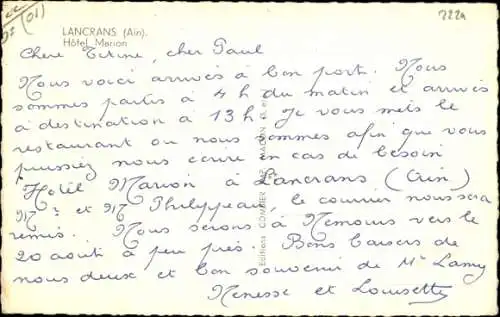 (01)
2224
LANCRANS (Ain).
Hôtel Marion
Chère Titine, cher Paul
Nous voici arrivés à bon port. Nous
sommes partis à 4h du matin et arrivés
à destination à 13h. Je vous mets le
restaurant ou nous sommes afin que vous
puissiez nous écrire en cas de besoin
Hotel Marion à Lancrans (Ain)
Mr et Me Philippeau, le courrier nous sera
remis. Nous serons à Nemours vers le
20 août à peu près. Bons baisers de
nous deux et bon souvenir de Me Lamy
Nenesse et Louisette
Editions COMBIER IMP. MACON